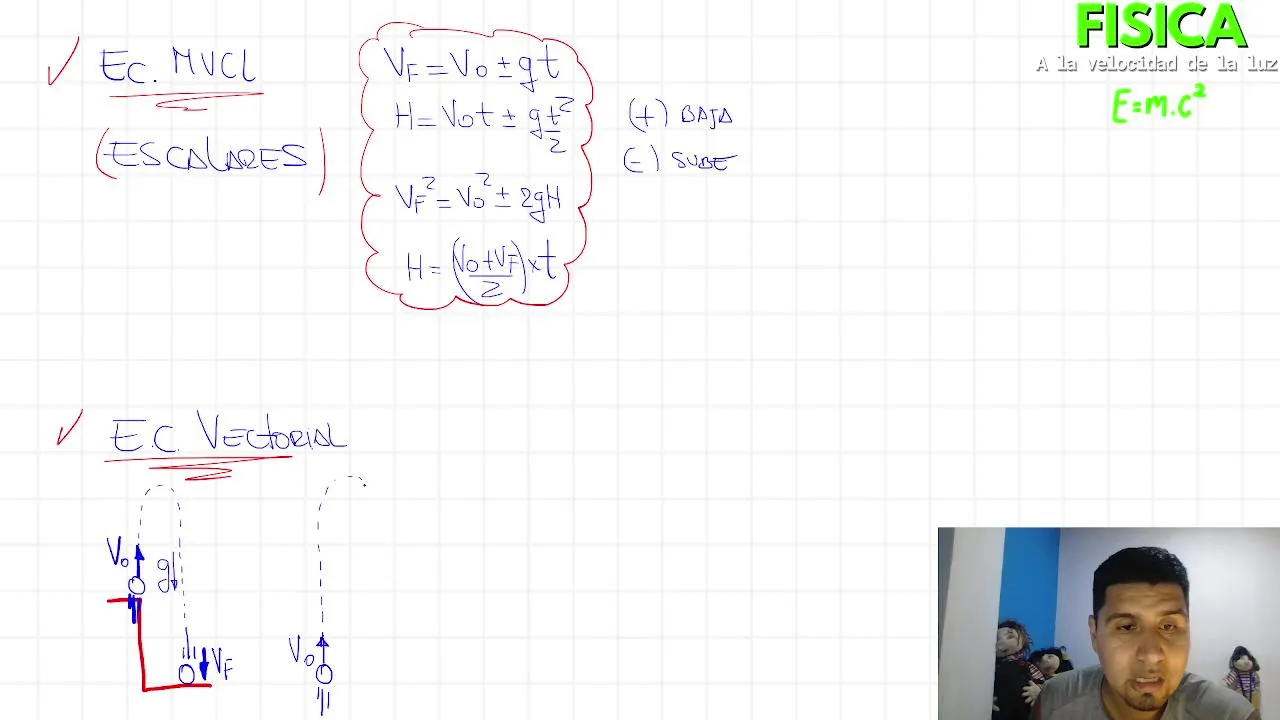 FISICA
A la velocidad de la luz
E=m.c²
Ec. MVCL
(ESCALARES)
VF = V0 ± gt
H = V0t ± gt²/2
VF² = V0² ± 2gH
H = (V0+VF/2) × t
(+) BAJA
(-) SUBE
E.C. VECTORIAL
V0
g
VF
V0